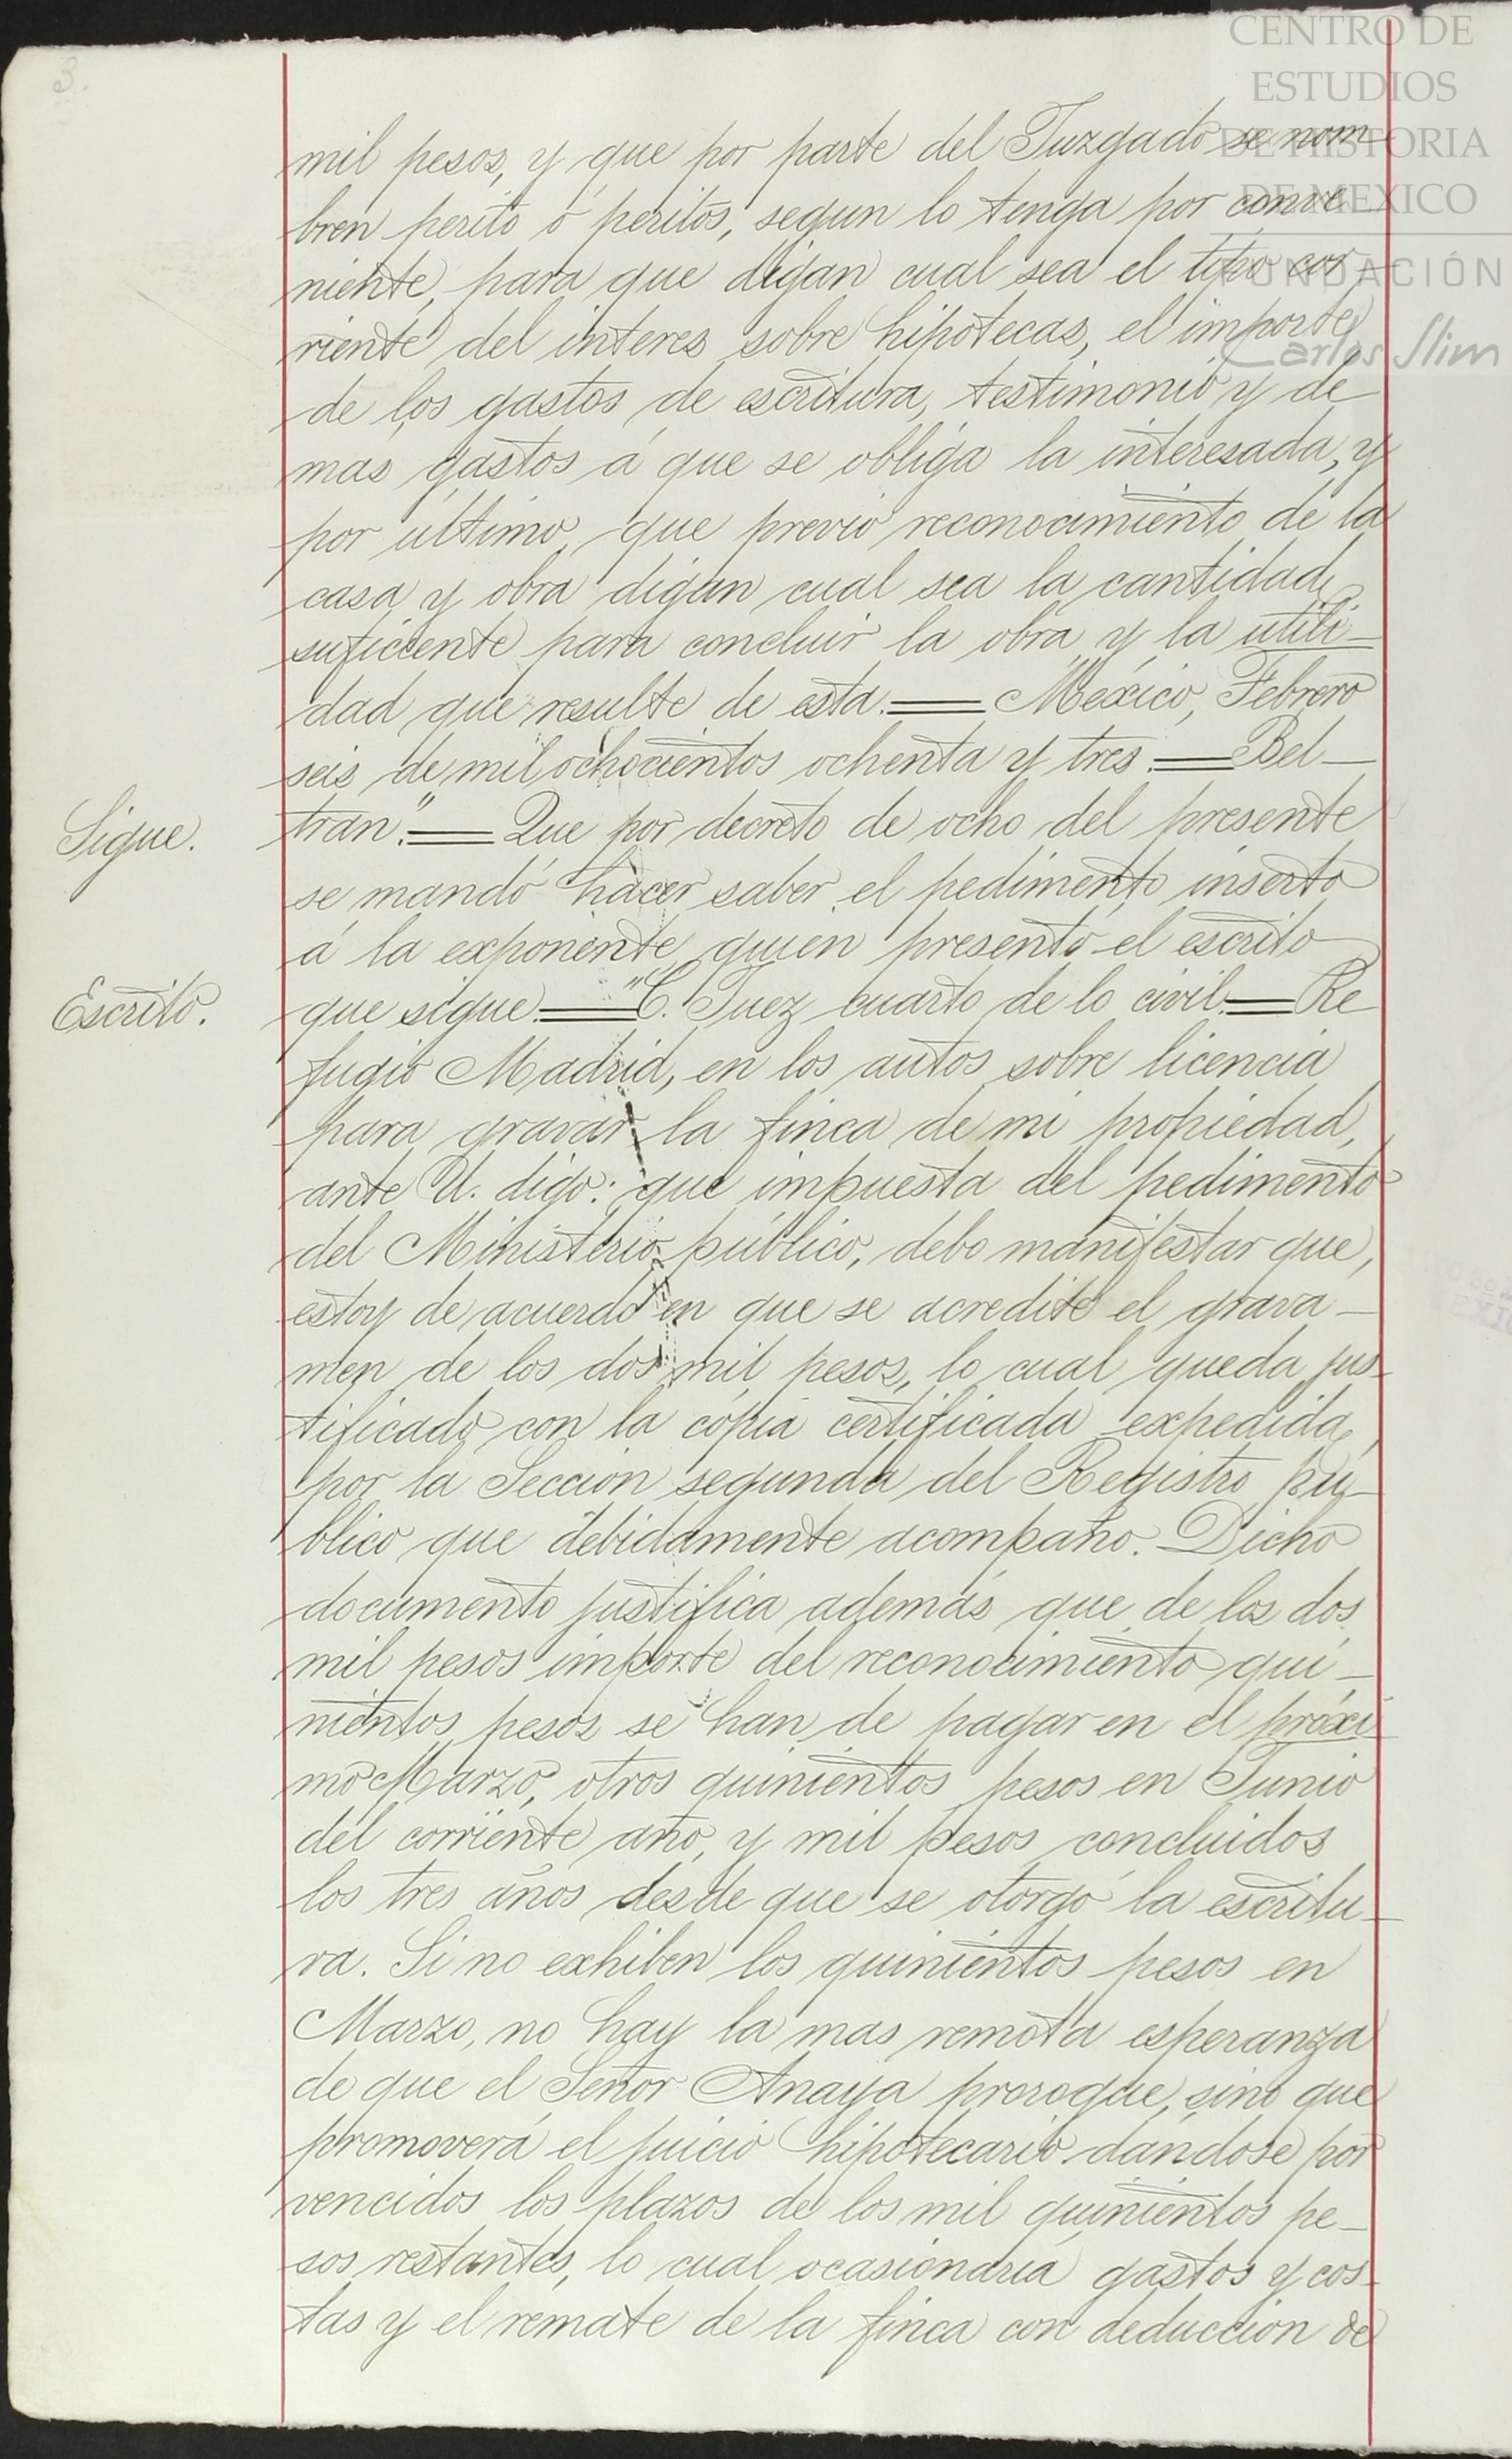 CENTRO DE
ESTUDIOS
DE HISTORIA
DE MEXICO
FUNDACIÓN
Carlos Slim
mil pesos, y que por parte del Juzgado se nom-
bren perito ó peritos, segun lo tenga por conve
niente, para que digan cual sea el tipo cor-
riente del interes sobre hipotecas, el importe
de los gastos de escritura, testimonio y de
mas gastos á que se obliga la interesada, y
por último, que previo reconocimiento de la
casa y obra digan cual sea la cantidad
suficiente para concluir la obra y la utili-
dad que resulte de esta.— México, Febrero
seis de mil ochocientos ochenta y tres.— Bel-
Sigue.
tran."— Que por decreto de ocho del presente
se mandó hacer saber el pedimento inserto
á la exponente, quien presentó el escrito
Escrito.
que sigue.— "C. Juez cuarto de lo civil.— Re
fugio Madrid, en los autos sobre licencia
para gravar la finca de mi propiedad,
ante U. digo: que impuesta del pedimento
del Ministerio público, debo manifestar que,
estoy de acuerdo en que se acredite el grava-
men de los dos mil pesos, lo cual queda jus-
tificado con la copia certificada expedida
por la Seccion segunda del Registro pú-
blico que debidamente acompaño. Dicho
documento justifica además que de los dos
mil pesos importe del reconocimiento qui-
nientos pesos se han de pagar en el próxi-
mo Marzo, otros quinientos pesos en Junio
del corriente año, y mil pesos concluidos
los tres años desde que se otorgó la escritu-
ra. Si no exhiben los quinientos pesos en
Marzo, no hay la mas remota esperanza
de que el Señor Anaya prorogue, sino que
promoverá el juicio hipotecario dándose por
vencidos los plazos de los mil quinientos pe-
sos restantes, lo cual ocasionaría gastos y cos-
tas y el remate de la finca con deduccion de